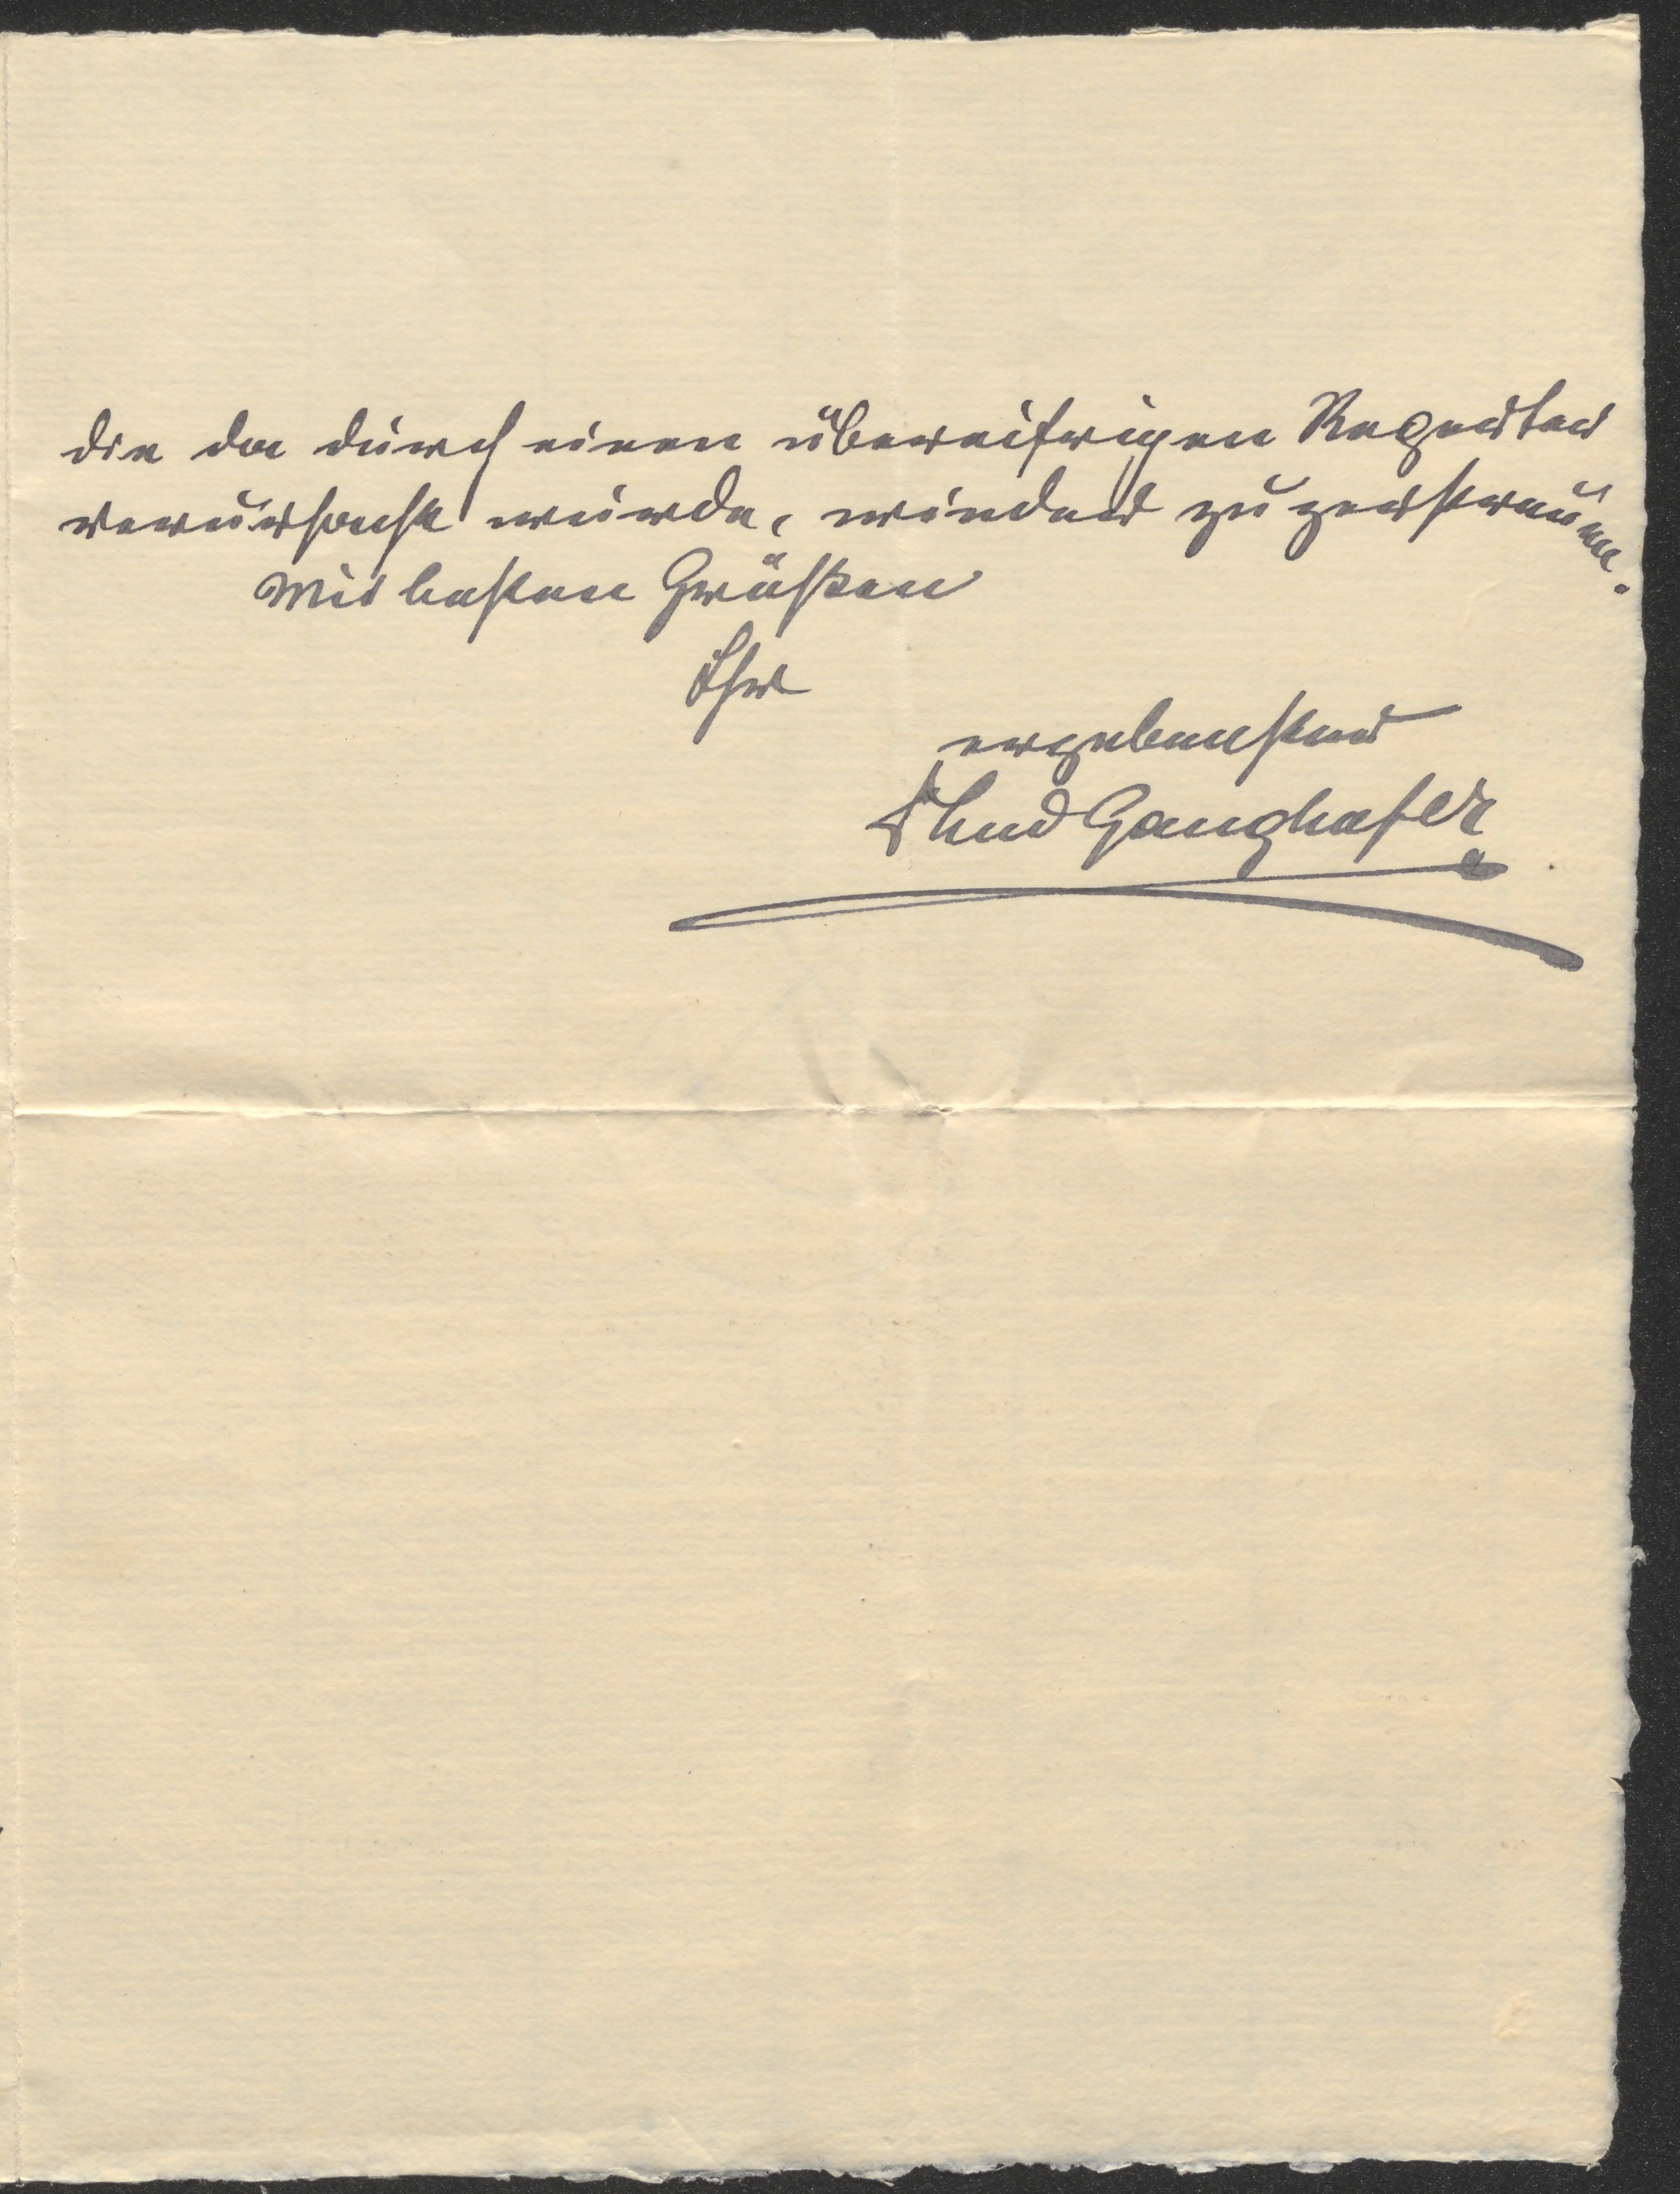 die da durch einen übereifrigen Reporter
verursacht wurde, wieder zu zerstreuen.
Mit besten Grüßen
Ihr
ergebenster
LudGanghofer